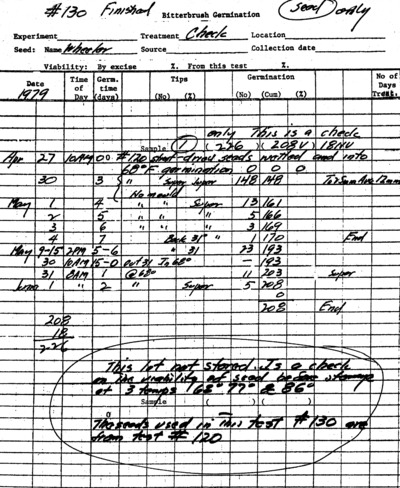 #130 Finished
Bitterbrush Germination
Seed only
Experiment Treatment Check Location
Seed: Name Wheeler Source Collection date
Viability: By excise %. From this test %.
Date Time of Day Germ. time (days) Tips (No) (%) Germination (No) (Cum) (%) No of Days Treat.
1979
only This is a check
Sample (226) (208V) 18NV
Apr 27 10AM 00 #120 seed-dried seeds wetted and into
68°F germination 0 0 0
30 3 " Super Super 148 148
No mould
May 1 4 " " Super 13 161
2 5 " " " 5 166
3 6 " " 3 169
4 7 Back 31° " 1 170 End
May 9-15 2PM 5-6 " 31 23 193
30 10AM 15-0 out 31 In 68° — 193
31 8AM 1 @68° 11 203 Super
June 1 " 2 " Super 5 208
0
208 End
208
18
226
This lot not stored. Is a check
on the viability of seed before storage
at 3 temps 68° 77° & 86°
Sample ( ) ( )
The seeds used in This test #130 are
from test # 120